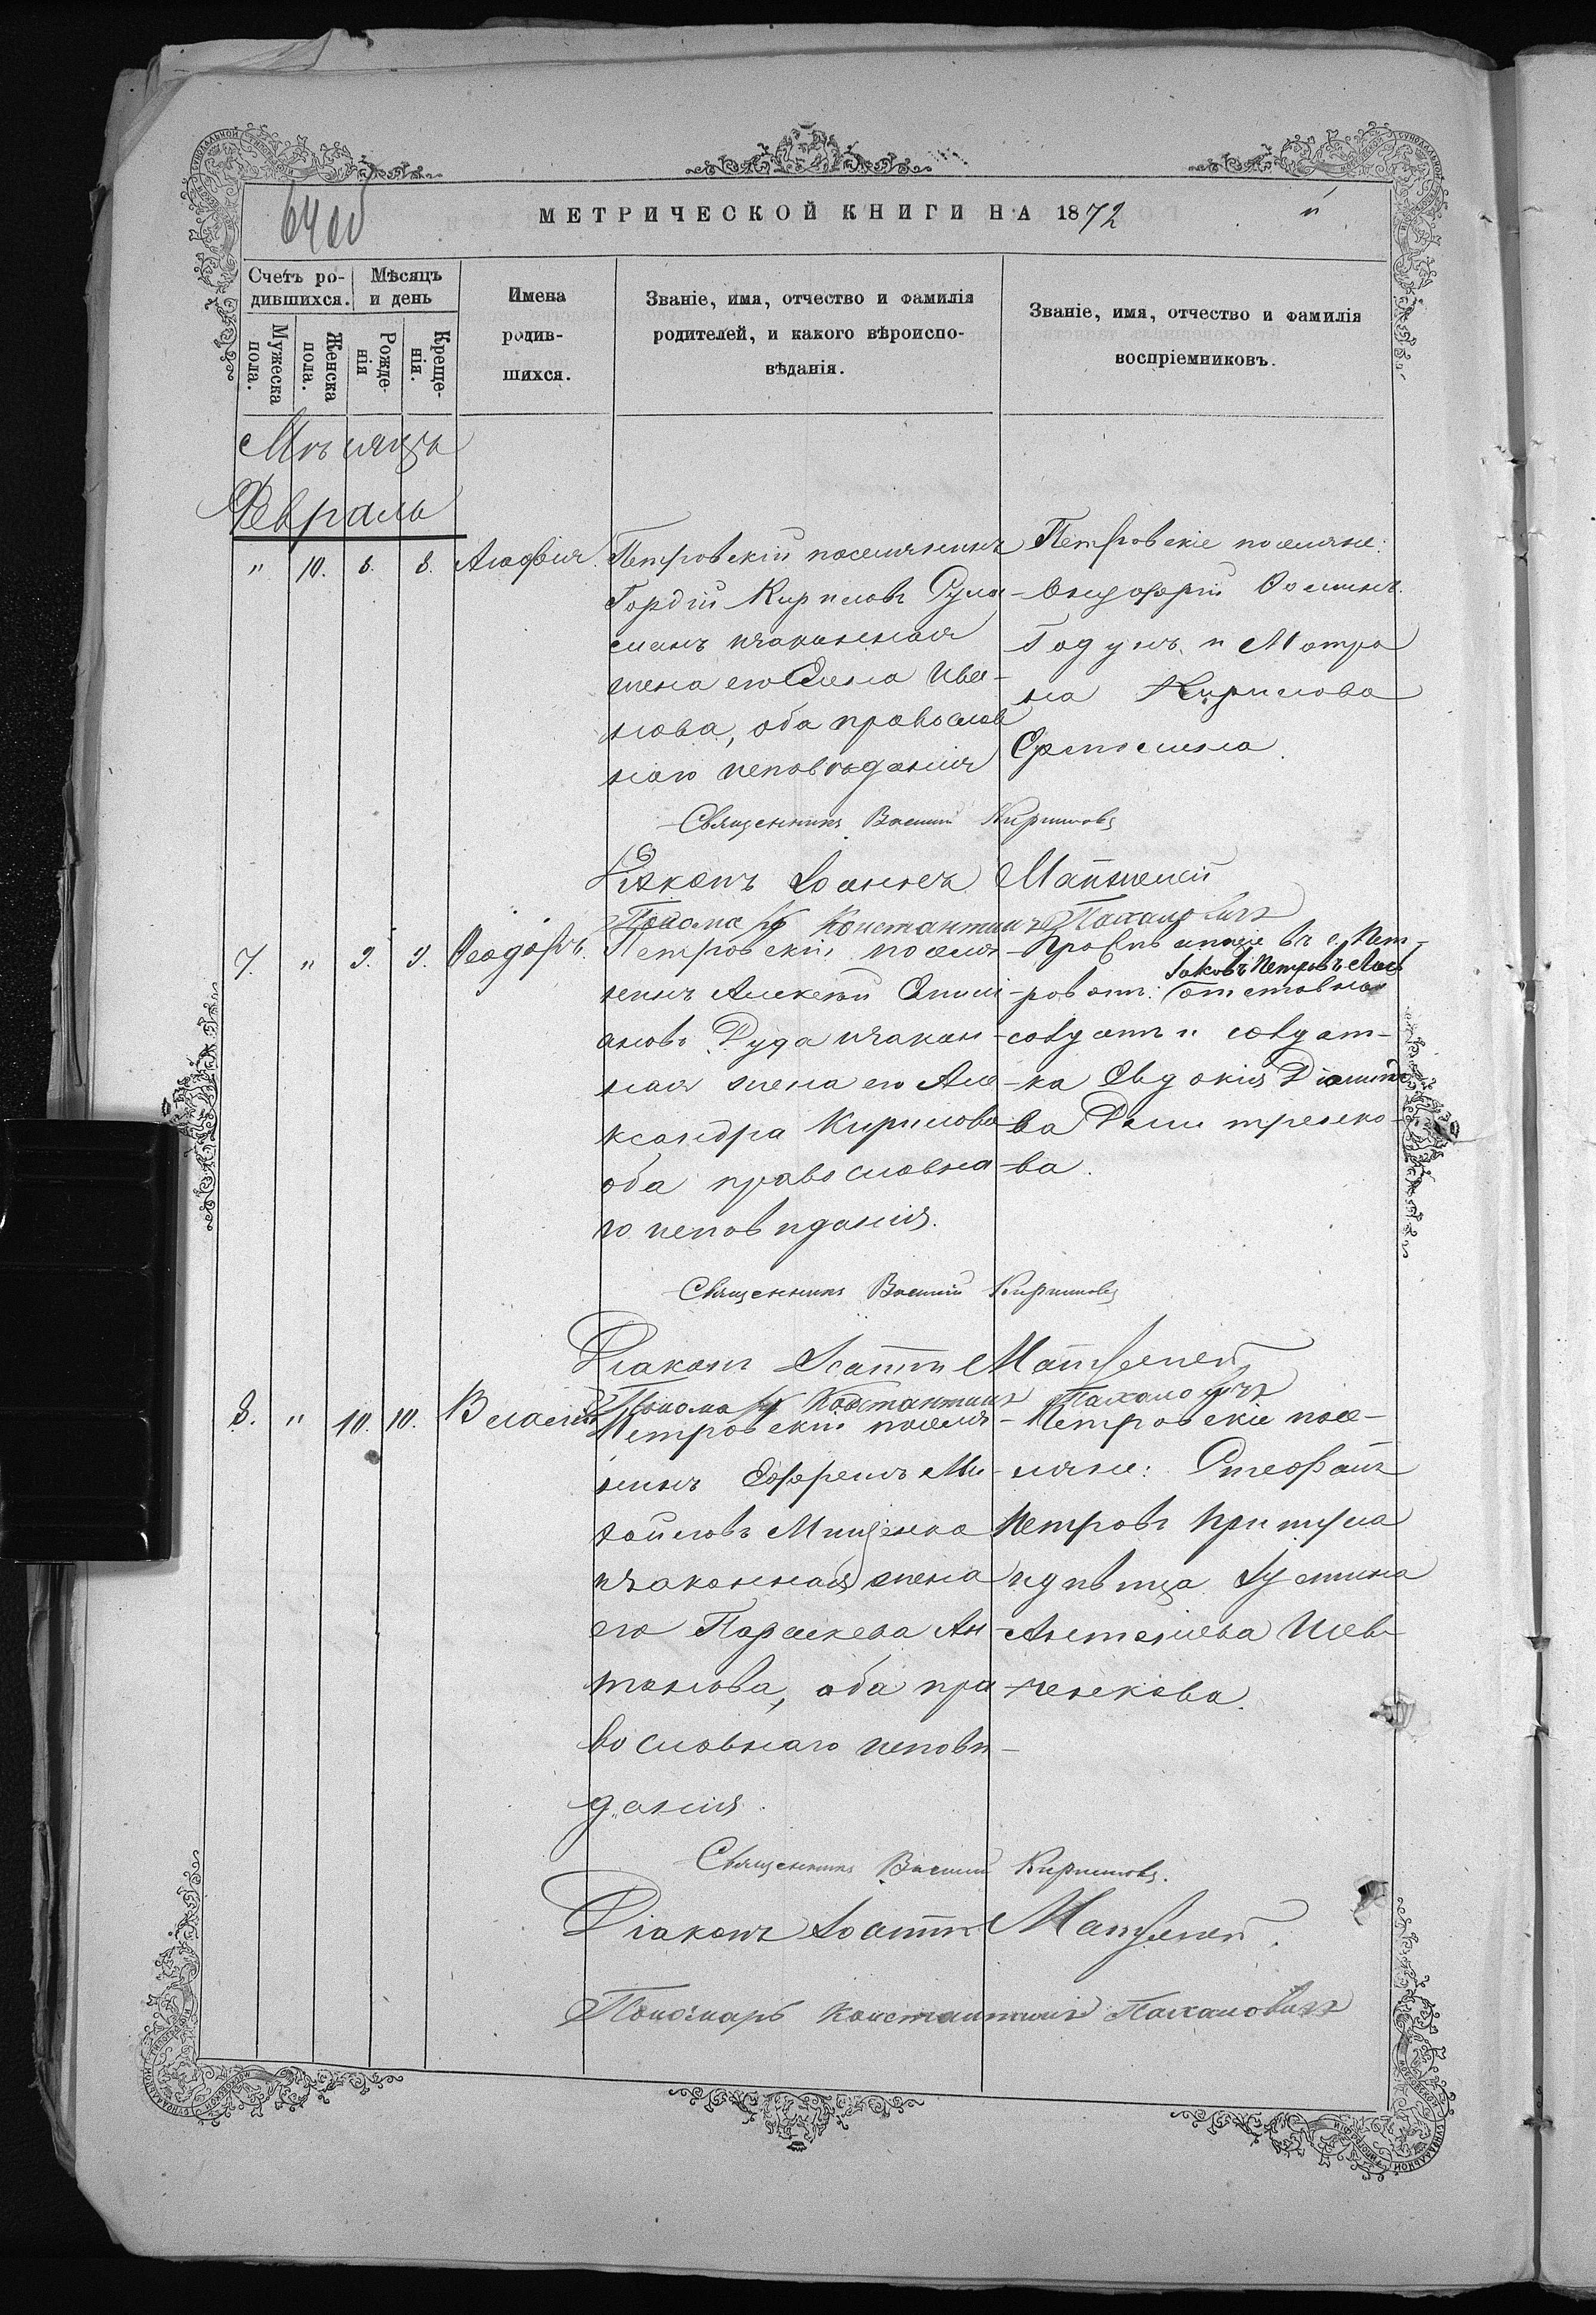 64 об
МЕТРИЧЕСКОЙ КНИГИ НА 1872
Счетъ родившихся.
Мужеска пола.
Женска пола.
Мѣсяцъ и день
Рожденія
Крещенія.
Имена
родив-
шихся.
Званіе, имя, отчество и фамилія
родителей, и какого вѣроиспо-
вѣданія.
Званіе, имя, отчество и фамилія
воспріемниковъ.
Мѣсяцъ
Февраль
" 10. 8. 8. Агафія.
Петровскій поселянинъ
Гордій Кириловъ
изаконная
жена его Елена Ива-
нова, оба православ
наго исповѣданія
Петровскіе поселяне:
Онуфрій
Годунъ и Матро
на Кирилова
Священникъ Василій Кирилловъ
Діаконъ Іоаннъ
Пономарь Константинъ Пахаловичъ
7. " 9. 9. Феодоръ.
Петровскій поселя-
нинъ Алексѣй
ановъ Руда изакон-
ная жена его Але-
ксандра Кирилова
оба православна-
го исповѣданія.
Проживающіе въ с. Пет-
Іаковъ Петровъ
ровкѣ: отставной
солдатъ и солдат-
ка Евдокія
ва
ва.
Священникъ Василій Кирилловъ
Діаконъ Іоаннъ
Пономарь Константинъ Пахаловичъ
8. " 10. 10. Власій
Петровскій поселя-
нинъ Ефремъ Ми-
хайловъ Мищенко
изаконная жена
его Параскева Ан-
тонова, оба пра-
вославнаго исповѣ-
данія.
Петровскіе посе-
ляне: Стефанъ
Петровъ Притула
идѣвица Іустина
Анто­ніева Шев-
ченкова.
Священникъ Василій Кирилловъ.
Діаконъ Іоаннъ
Пономарь Константинъ Пахаловичъ